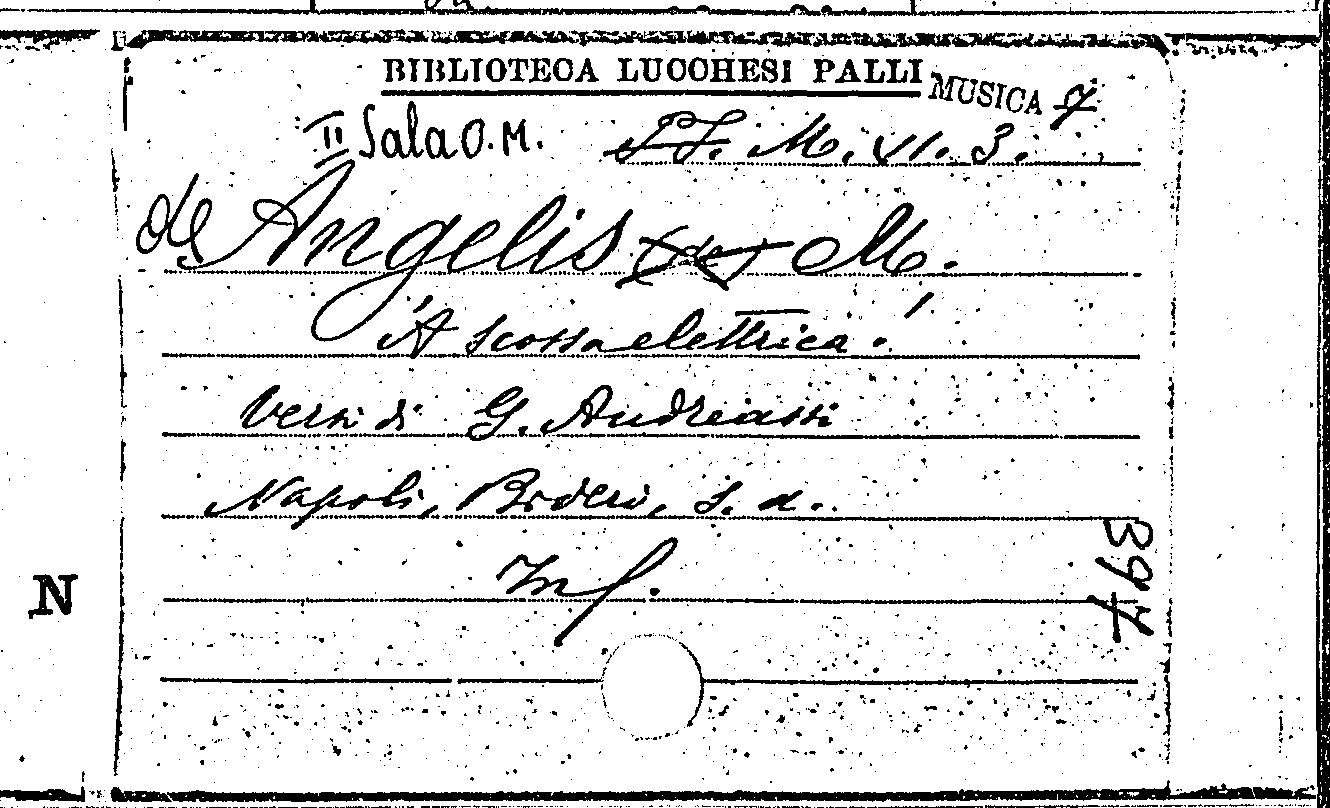 BIBLIOTECA LUCCHESI PALLI
MUSICA 7
II Sala O. M. M. VI. 3.
de Angelis (de) M.
'A scossa elettrica!
Versi di G. Andreassi
Napoli, Bideri, s. d.
In f.
397
N